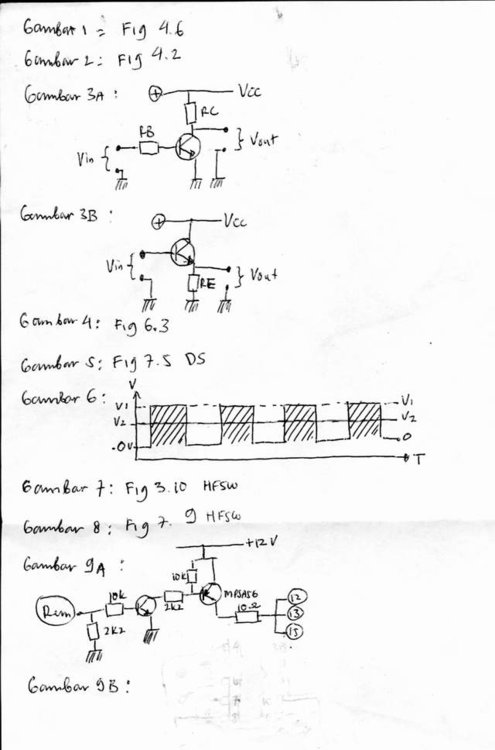 Gambar 1 = Fig 4.6
Gambar 2: Fig 4.2
Gambar 3A:
Vcc
RC
RB
Vin
Vout
Gambar 3B:
Vcc
Vin
Vout
RE
Gambar 4: Fig 6.3
Gambar 5: Fig 7.5 DS
Gambar 6:
V
V1
V1
V2
V2
0v
0
T
Gambar 7: Fig 3.10 HFSW
Gambar 8: Fig 7.9 HFSW
Gambar 9A:
+12V
10k
MPSA56
10k
2k2
10Ω
12
Rem
13
2k2
15
Gambar 9B: